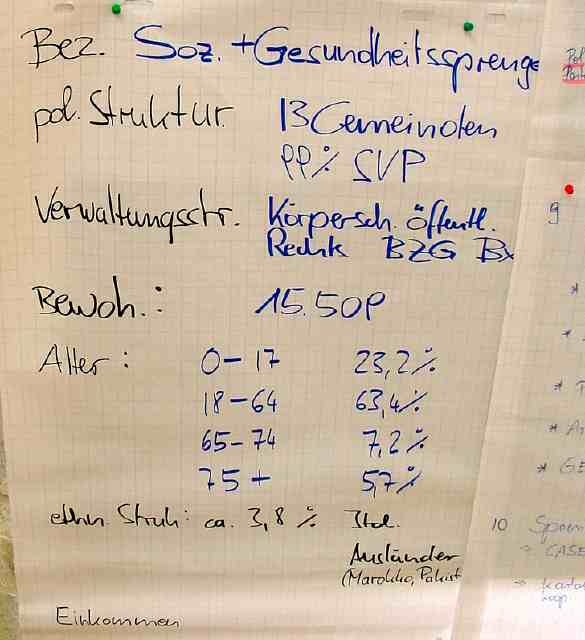 Bez. Soz. + Gesundheitssprenge
pol. Struktur 13 Gemeinden
99% SVP
Verwaltungsstr. Körpersch. öffentl.
Rechts BZG Bx
Bewoh.: 15.509
Alter: 0-17 23,2%
18-64 63,4%
65-74 7,2%
75+ 5,7%
ethn. Struk: ca. 3,8% Ital.
Ausländer
(Marokko, Pakist
Einkommen
9
10
CASE